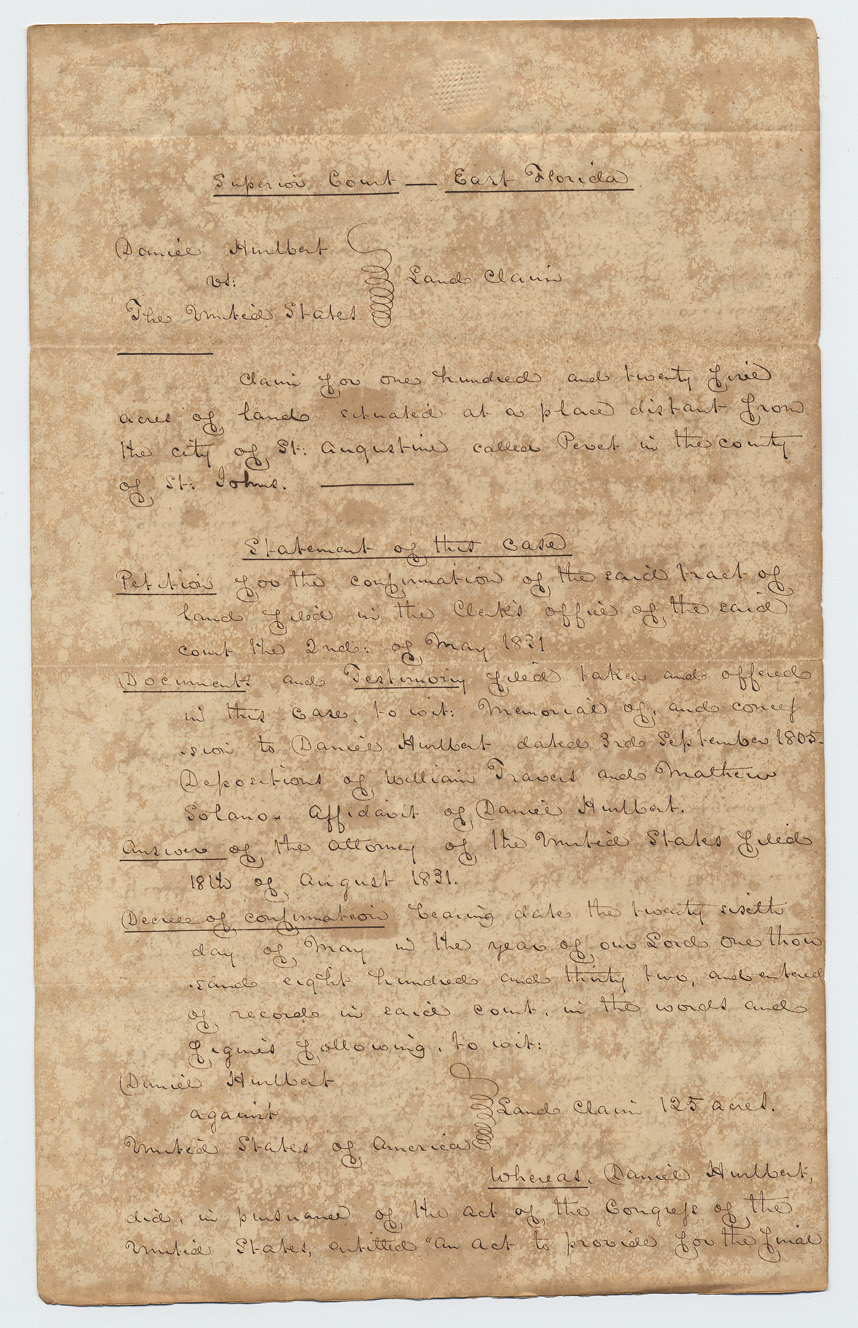 Superior Court — East Florida
Daniel Hurlbert
vs:
Land Claim
The United States
Claim for one hundred and twenty five
acres of land situated at a place distant from
the city of St: Augustine called Pevet in the county
of St: Johns. —
Statement of this case
Petition for the confirmation of the said tract of
land filed in the Clerk's office of the said
court the 2nd: of May 1831
Documents and Testimony filed taken and offered
in this case, to wit: Memorial of, and concef
-sion to Daniel Hurlbert dated 3rd September 1805-
Depositions of William Travers and Mathew
Solano- Affidavit of Daniel Hurlbert.
Answer of the attorney of the United States filed
18th of August 1831.
Decree of confirmation bearing date the twenty sixth
day of May in the year of our Lord one thou
-sand eight hundred and thirty two, and entered
of record in said court, in the words and
figures following, to wit:
Daniel Hurlbert
against
Land Claim 125 acres.
United States of America
Whereas, Daniel Hurlbert,
did, in pursuance of the act of the Congrefs of the
United States, entitled "An act to provide for the final